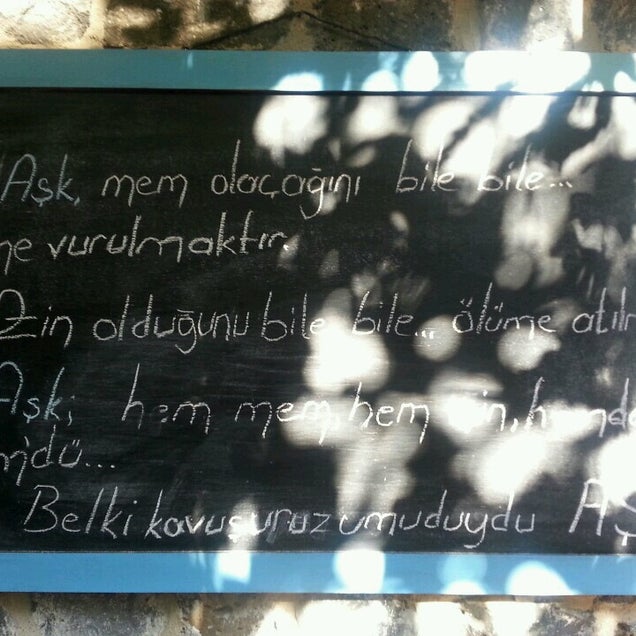 Aşk, mem olacağını bile bile...
ne vurulmaktır.
Zin olduğunu bile bile... ölüme atılm
Aşk; hem mem, hem zin, hemde
m'dü...
Belki kavuşuruz umuduydu AŞ